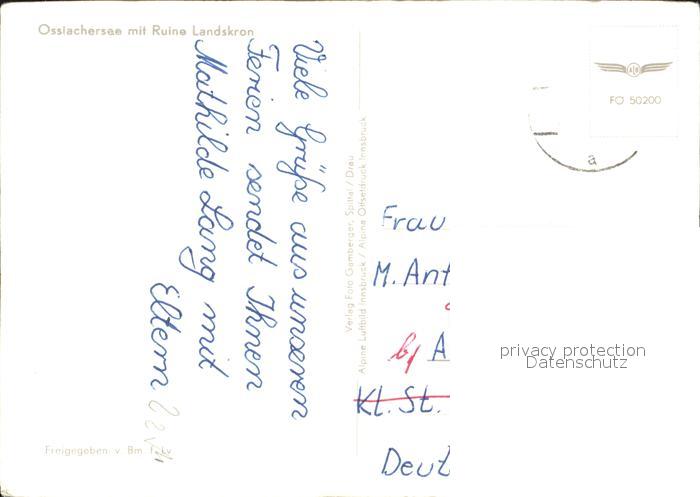 Ossiachersee mit Ruine Landskron
Viele Grüße aus unseren
Ferien sendet Ihnen
Mathilde Lang mit
Eltern
Freigegeben v. Bm. f.
Verlag Foto Gamberger, Spittal / Drau
Alpine Luftbild Innsbruck / Alpina Offsetdruck Innsbruck
FÖ 50200
a
Frau
M. Ant
A
Kl. St.
Deut
privacy protection
Datenschutz